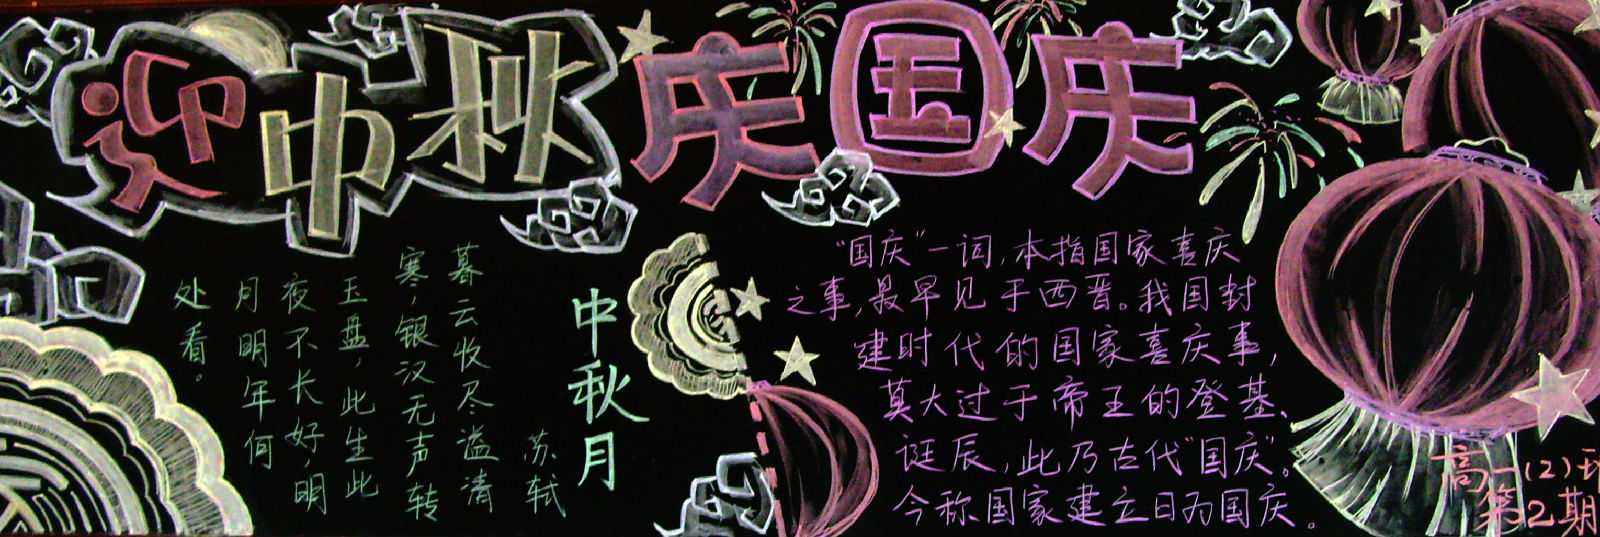 迎中秋 庆国庆
中秋月
苏轼
暮云收尽溢清
寒，银汉无声转
玉盘，此生此
夜不长好，明
月明年何
处看。
“国庆”一词，本指国家喜庆
之事，最早见于西晋。我国封
建时代的国家喜庆事，
莫大过于帝王的登基、
诞辰，此乃古代“国庆”。
今称国家建立日为国庆。
高一（2）班
第2期